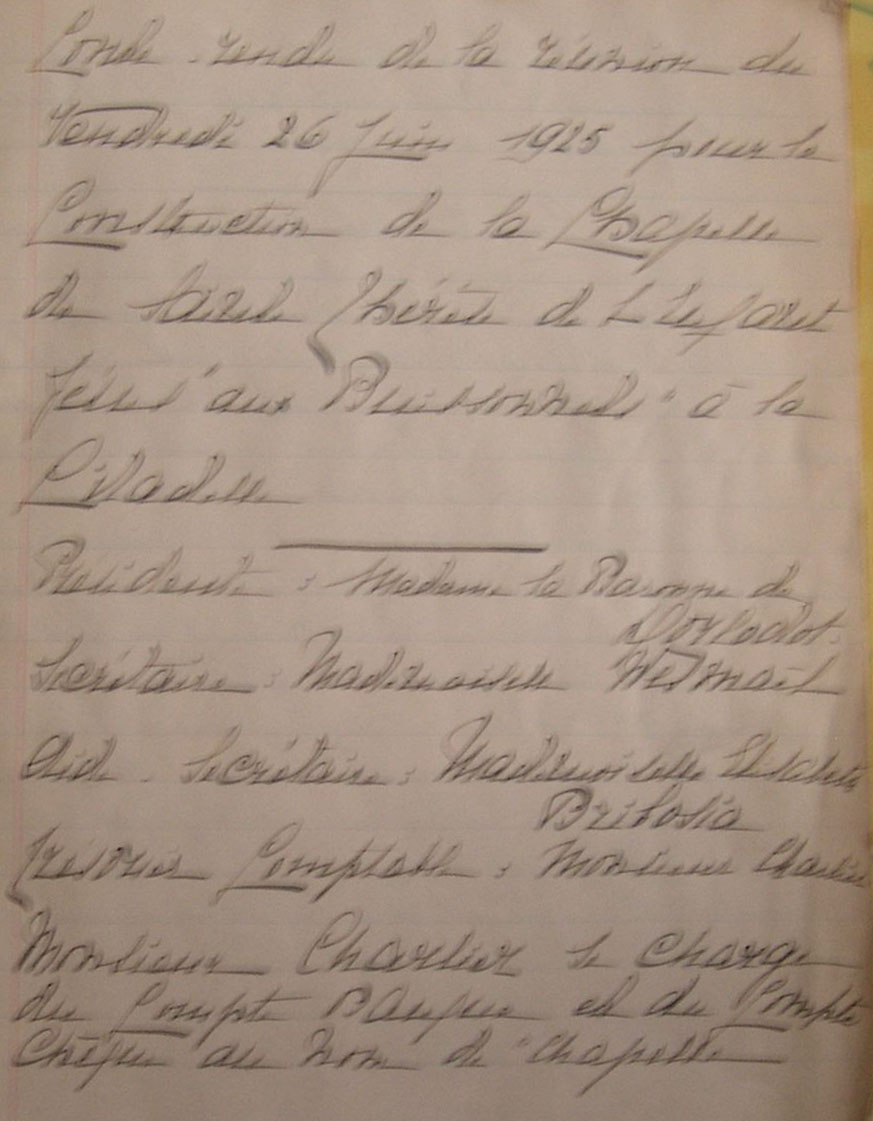 Conte-rendu de la réunion du
Vendredi 26 Juin 1925 pour la
Construction de la Chapelle
de Sainte Thérèse de L'Enfant
Jésus "aux Buissonnets" à la
Citadelle
Présidente : Madame la Baronne de
Dorlodot.
Secrétaire : Mademoiselle Wesmael
Aide-Secrétaire : Mademoiselle Elisabeth
Bribosia
Trésorier Comptable : Monsieur Charlier
Monsieur Charlier se charge
du Compte Banque et du Compte
Chèque au nom de "Chapelle